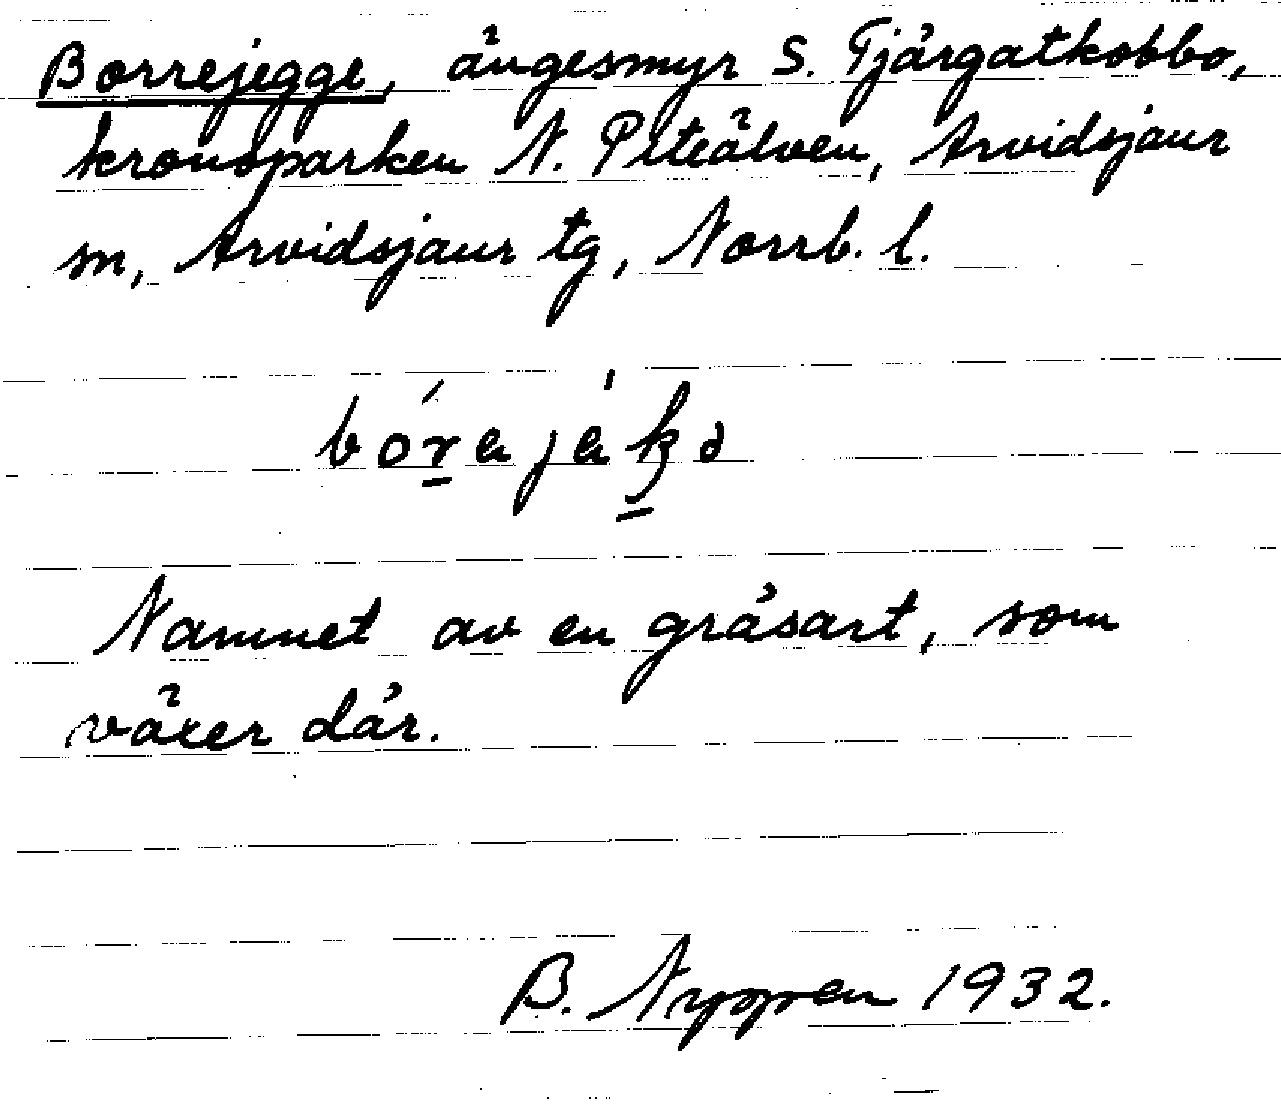 Borrejegge, ängesmyr S. Tjärgatkobbo,
kronoparken N. Piteälven, Arvidsjaur
sn, Arvidsjaur tg, Norrb. l.
Namnet av en gräsart, som
växer där.
B. 1932.